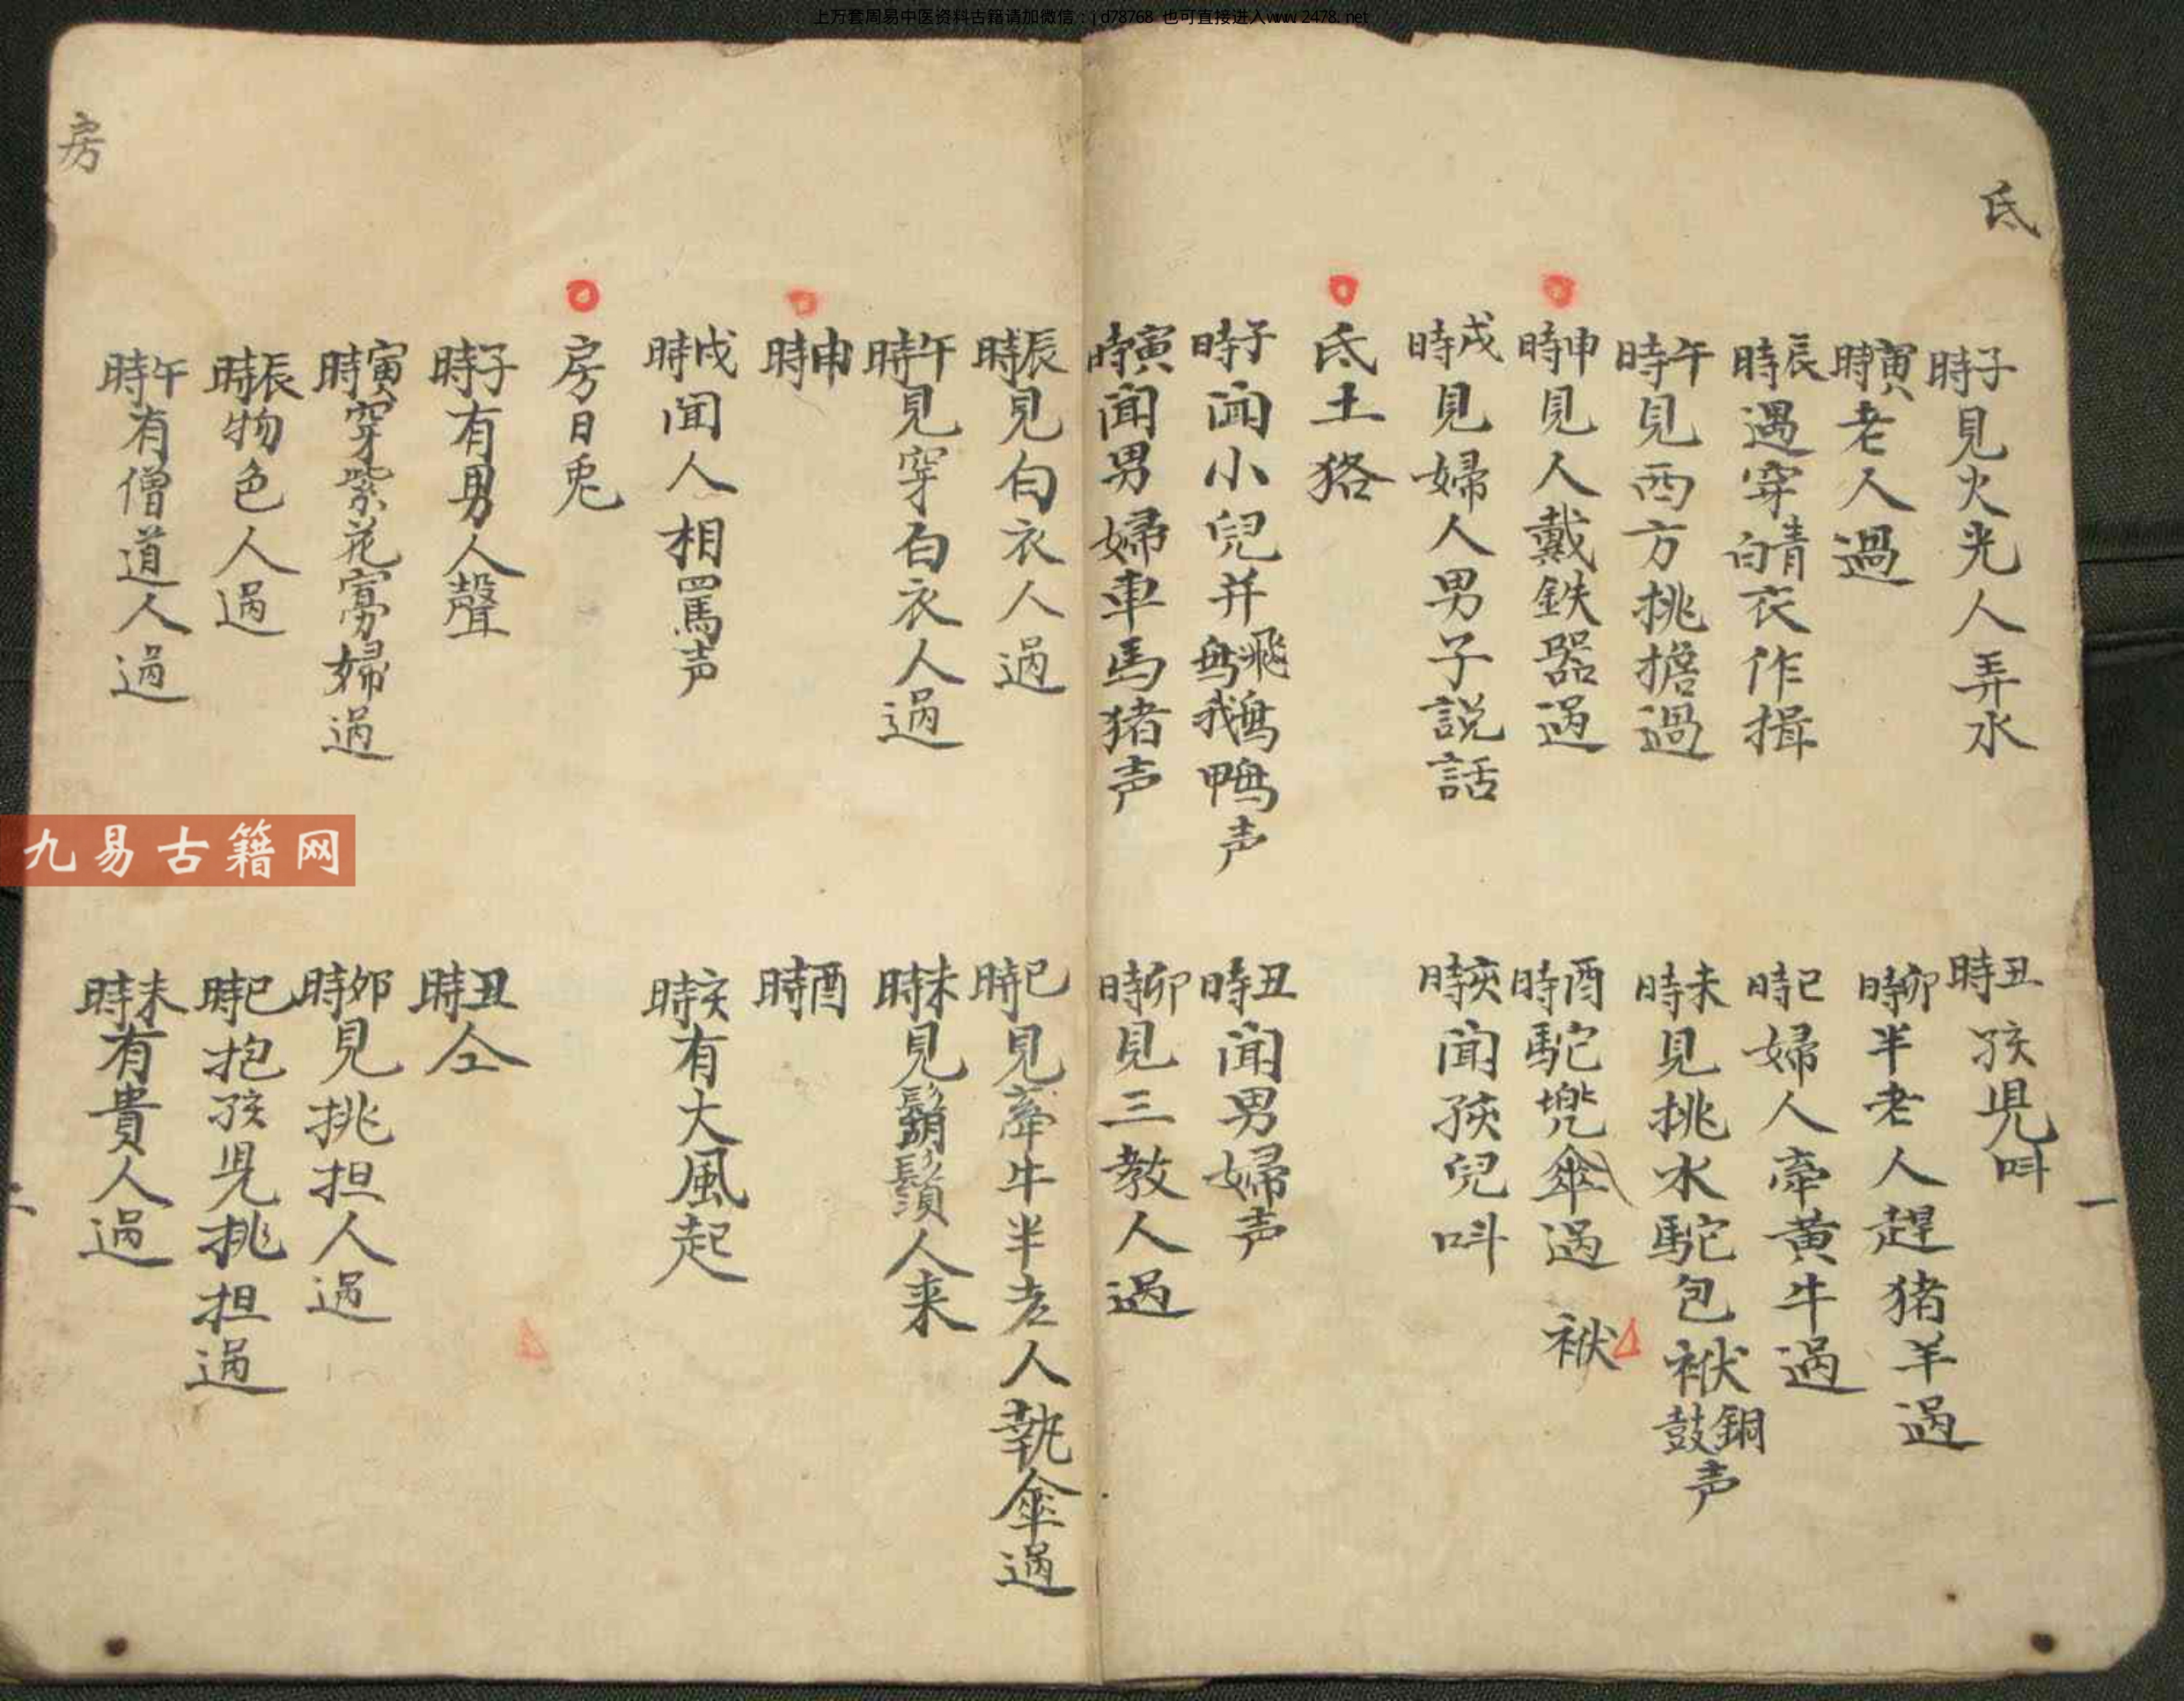 上万套周易中医资料古籍请加微信：jd78768 也可直接进入www.2478.net
氐
子時見火光人弄水
丑時孩児叫
寅時老人過
卯時半老人趕猪羊過
辰時遇穿青白衣作揖
巳時婦人牽黄牛過
午時見西方挑擔過
未時見挑水駝包袱銅鼓声
申時見人戴鉄器過
酉時駝兠傘過
袱
戌時見婦人男子説話
亥時闻孩兒叫
氐土狢
子時闻小兒并飛鳥鵝鴨声
丑時闻男婦声
寅時闻男婦車馬猪声
卯時見三教人過
辰時見白衣人過
巳時見牽牛半老人執傘過
午時見穿白衣人過
未時見鬍鬚人来
申時
酉時
戌時闻人相罵声
亥時有大風起
房日兎
子時有男人聲
丑時仝
寅時穿紫花寡婦過
卯時見挑担人過
辰時物色人過
巳時抱孩児挑担過
午時有僧道人過
未時有貴人過
房
一
二
九易古籍网